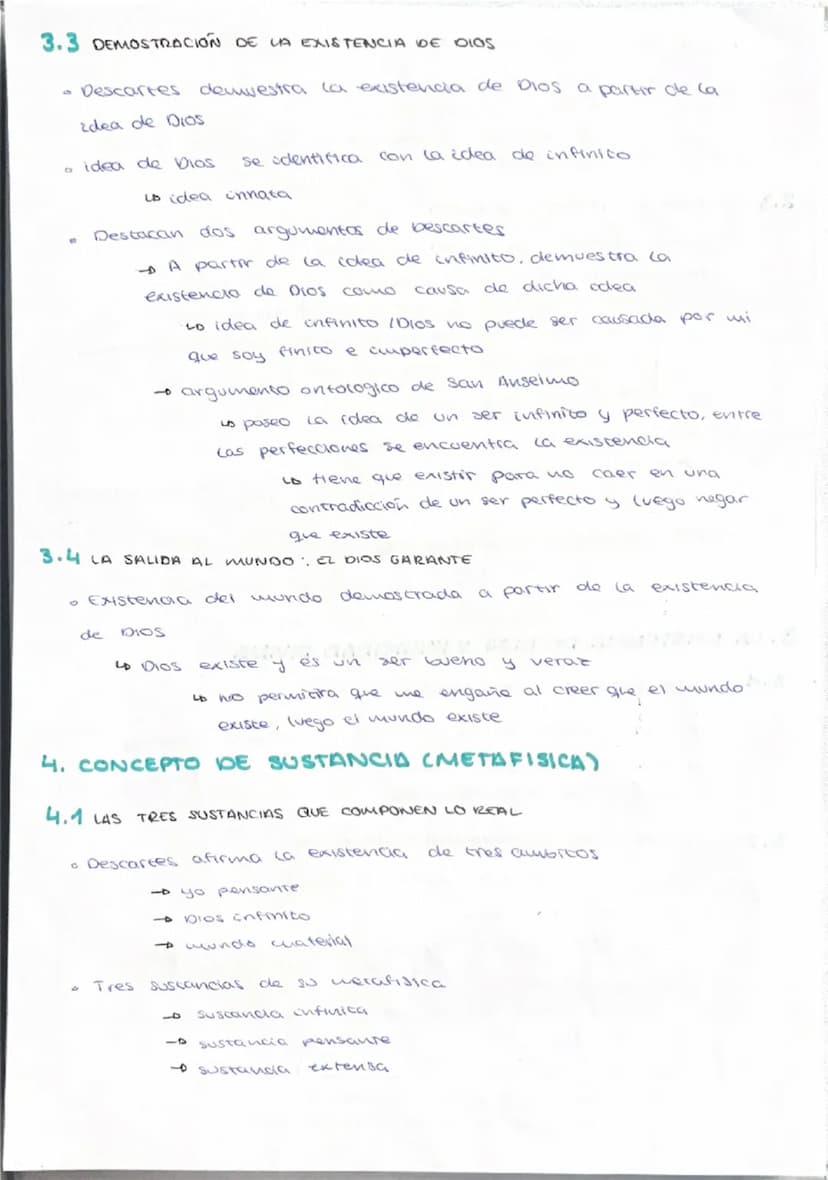 3.3 DEMOSTRACIÓN DE LA EXISTENCIA DE DIOS
◦ Descartes demuestra la existencia de Dios a partir de la
idea de Dios
◦ idea de Dios se identifica con la idea de infinito
↳ idea innata
◦ Destacan dos argumentos de Descartes
→ A partir de la idea de infinito, demuestra la
existencia de Dios como causa de dicha idea
↳ idea de infinito / Dios no puede ser causada por mi
que soy finito e imperfecto
→ argumento ontologico de San Anselmo
↳ poseo la idea de un ser infinito y perfecto, entre
las perfecciones se encuentra la existencia
↳ tiene que existir para no caer en una
contradicción de un ser perfecto y luego negar
que existe
3.4 LA SALIDA AL MUNDO: EL DIOS GARANTE
◦ Existencia del mundo demostrada a partir de la existencia
de DIOS
↳ Dios existe y és un ser bueno y veraz
↳ no permitira que me engañe al creer que el mundo
existe, luego el mundo existe
4. CONCEPTO DE SUSTANCIA (METAFISICA)
4.1 LAS TRES SUSTANCIAS QUE COMPONEN LO REAL
◦ Descartes afirma la existencia de tres ambitos
→ yo pensante
→ Dios infinito
→ mundo material
◦ Tres sustancias de su metafisica
→ sustancia infinita
→ sustancia pensante
→ sustancia extensa